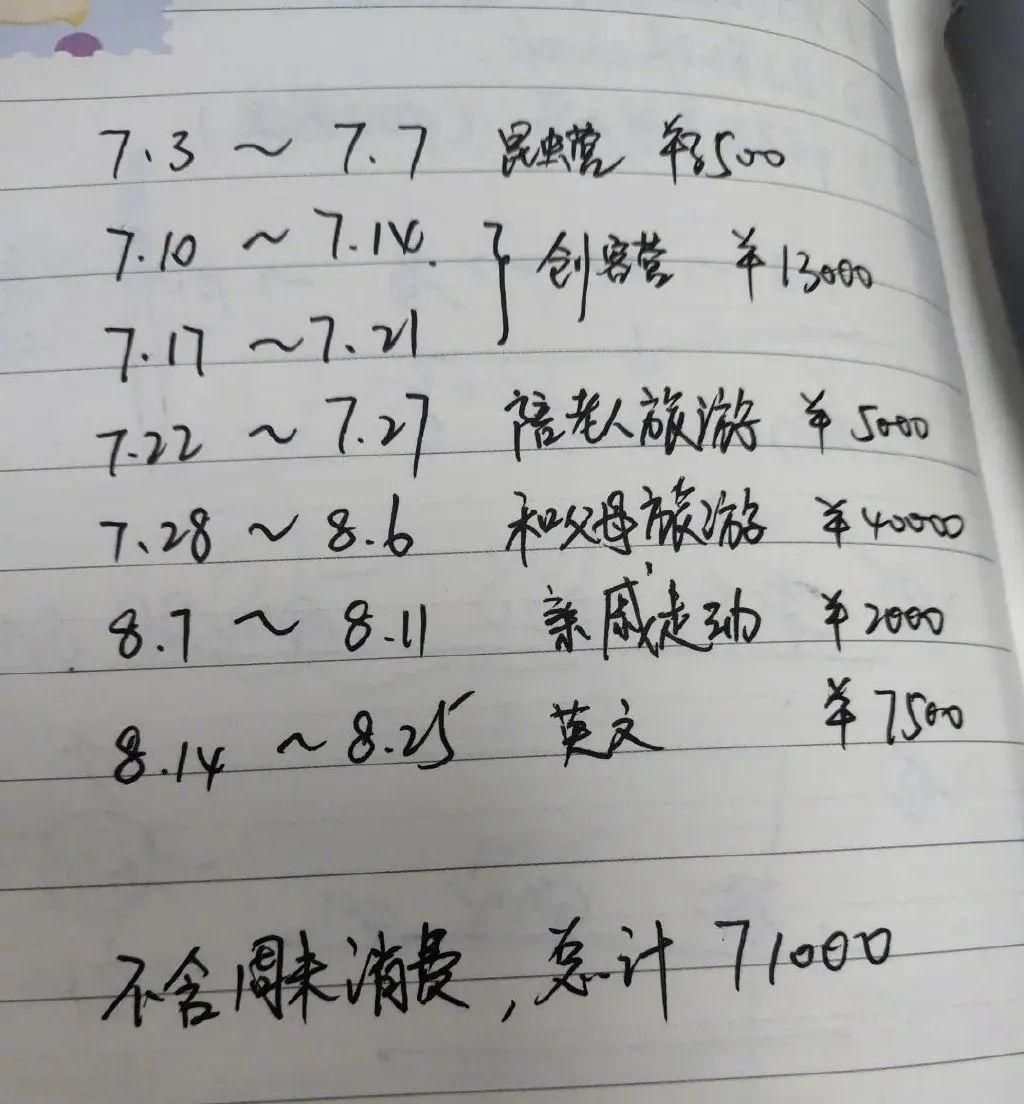 7.3 ~ 7.7 昆虫营 ¥3500
7.10 ~ 7.14. } 创客营 ¥13000
7.17 ~ 7.21
7.22 ~ 7.27 陪老人旅游 ¥5000
7.28 ~ 8.6 和父母旅游 ¥40000
8.7 ~ 8.11 亲戚走动 ¥2000
8.14 ~ 8.25 英文 ¥7500
不含周末消费,总计 71000